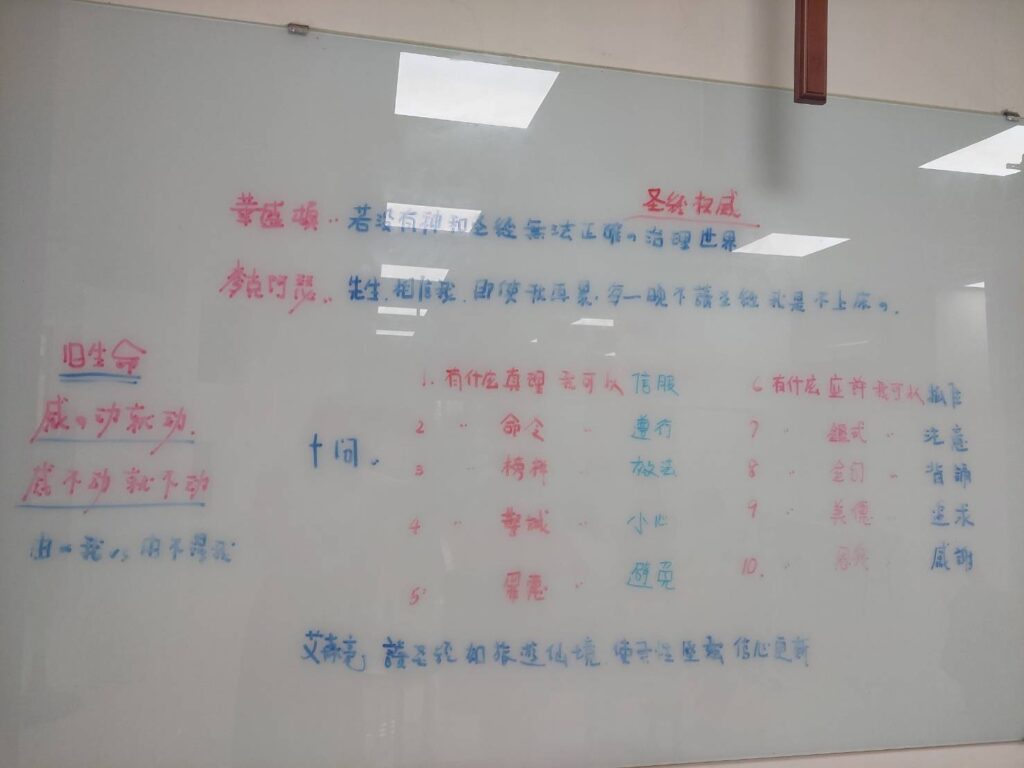 圣经权威
華盛頓：若没有神和圣經無法正確の治理世界
麥克阿瑟：先生,相信我,即使我再累,每一晚不讀圣經我是不上床の.
旧生命
感の动就动.
感不动就不动
由の我
由不得我
十问.
1. 有什应真理我可以信服
2 〃 命令 〃 遵行
3 〃 榜样 〃 效法
4 〃 警诫 〃 小心
5 〃 罪惡 〃 避免
6 有什应应許我可以抓住
7 〃 鑑戒 〃 注意
8 〃 金句 〃 背誦
9 〃 美德 〃 追求
10. 〃 恩典 〃 感謝
讀圣经如旅遊仙境 信心更新